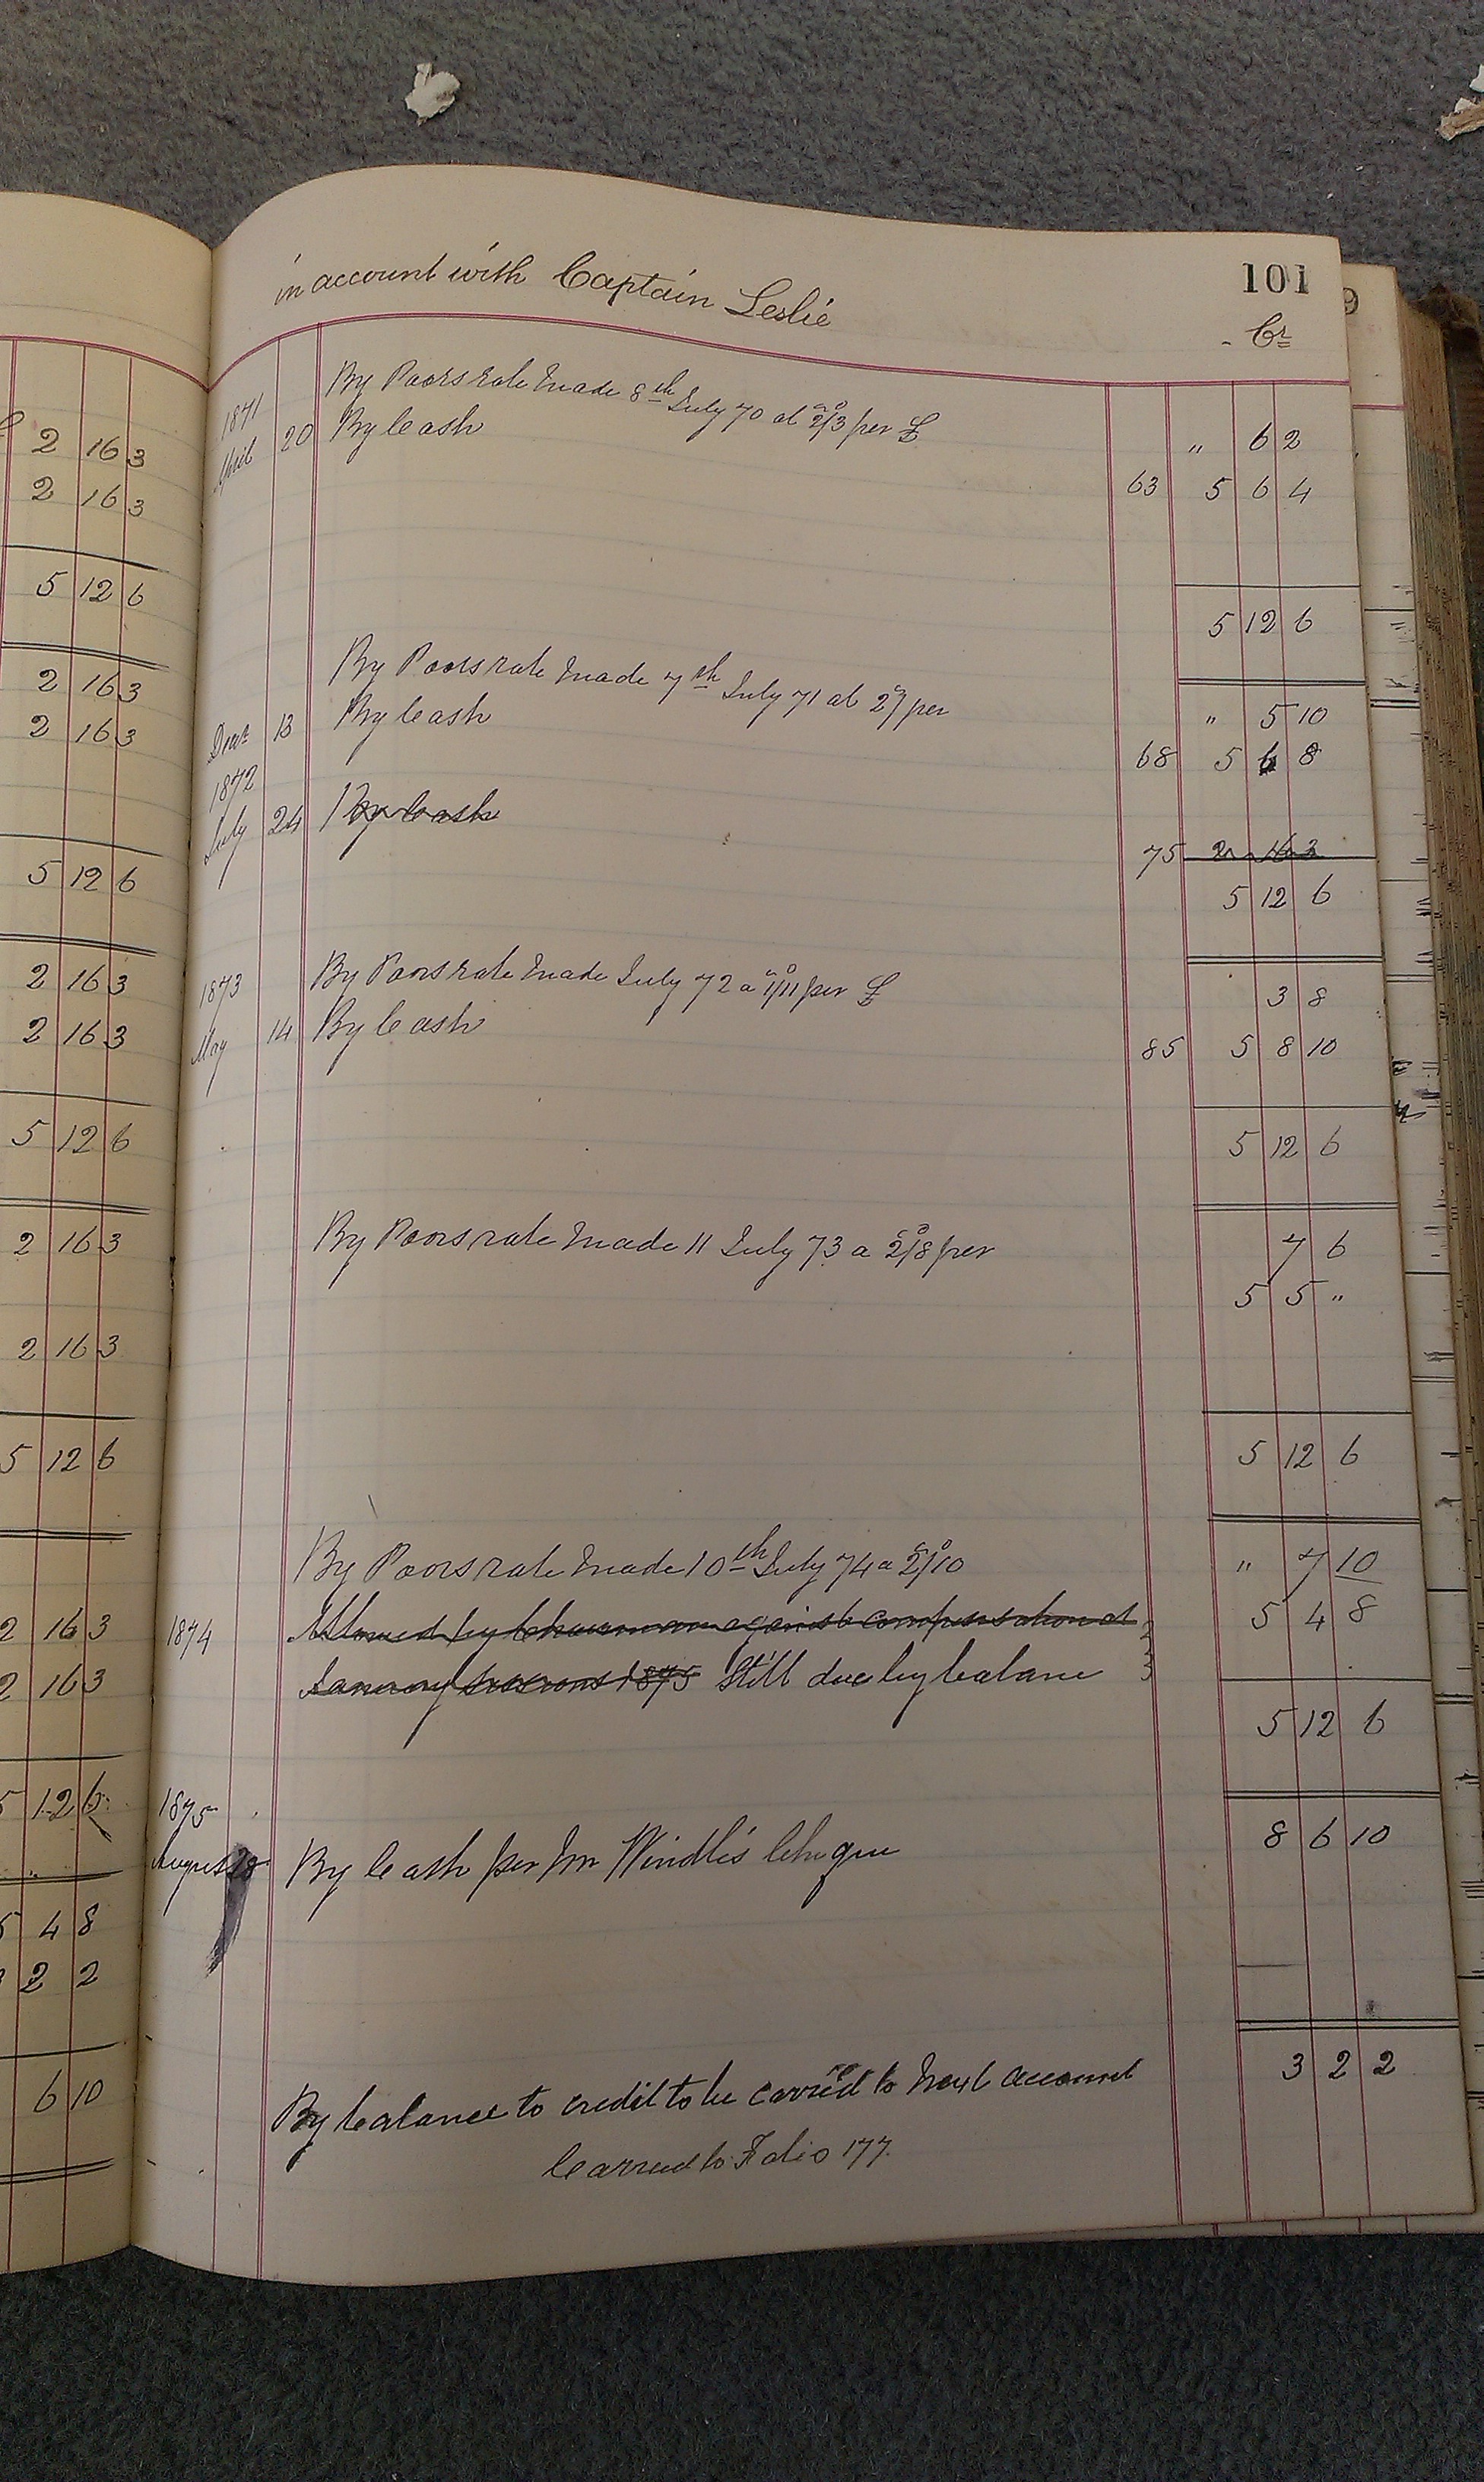 2 16 3
2 16 3
5 12 6
2 16 3
2 16 3
5 12 6
2 16 3
2 16 3
5 12 6
2 16 3
2 16 3
5 12 6
2 16 3
2 16 3
5 12 6
5 4 8
2 2
6 10
in account with Captain Leslie
101
Cr
1871
By Poors rate made 8th July 70 at 2/3 per £ " 6 2
April 20 By Cash 63 5 6 4
5 12 6
By Poors rate made 7th July 71 at 2/ per " 5 10
Decr 13 By Cash 68 5 6 8
1872
July 24 By Cash 75 2 16 3
5 12 6
1873
By Poors rate made July 72 a 1/11 per £ 3 8
May 14 By Cash 85 5 8 10
5 12 6
By Poors rate made 11 July 73 a 2/8 per 7 6
5 5 "
5 12 6
By Poors rate made 10th July 74 a 2/10 " 7 10
1874 Allowed by Chairman against compensation at 5 4 8
January sessions 1875 Still due by balance
5 12 6
1875
August By Cash per Mr Windle's Cheque 8 6 10
By balance to credit to be carried to next account 3 2 2
Carried to Folio 177
9